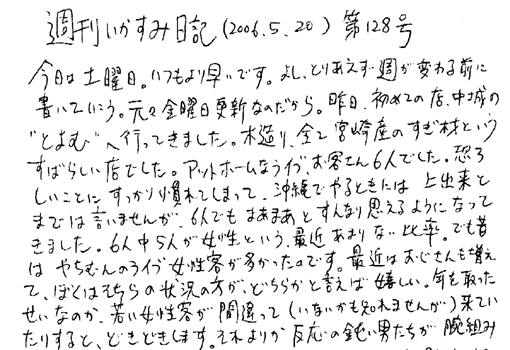 週刊いかすみ日記(2006.5.20)第128号
今日は土曜日。いつもより早いです。よし、とりあえず週が変わる前に
書いていこう。元々金曜日更新なのだから。昨日、初めての店、中城の
"とよむ"へ行ってきました。木造り、全て宮崎産のすぎ材という
すばらしい店でした。アットホームなライブ、お客さん6人でした。恐ろ
しいことにすっかり慣れてしまって、沖縄でやるときには上出来と
までは言いませんが、6人でもまあまあとすんなり思えるようになって
きました。6人中5人が女性という、最近あまりない比率。でも昔
は やちむんのライブ女性客が多かったのです。最近はおじさんも増え
て、ぼくはそちらの状況の方が、どちらかと言えば嬉しい。年を取った
せいなのか、若い女性客が間違って(いないかも知れませんが)来てい
たりすると、どきどきします。それよりか反応の鈍い男たちが腕組み